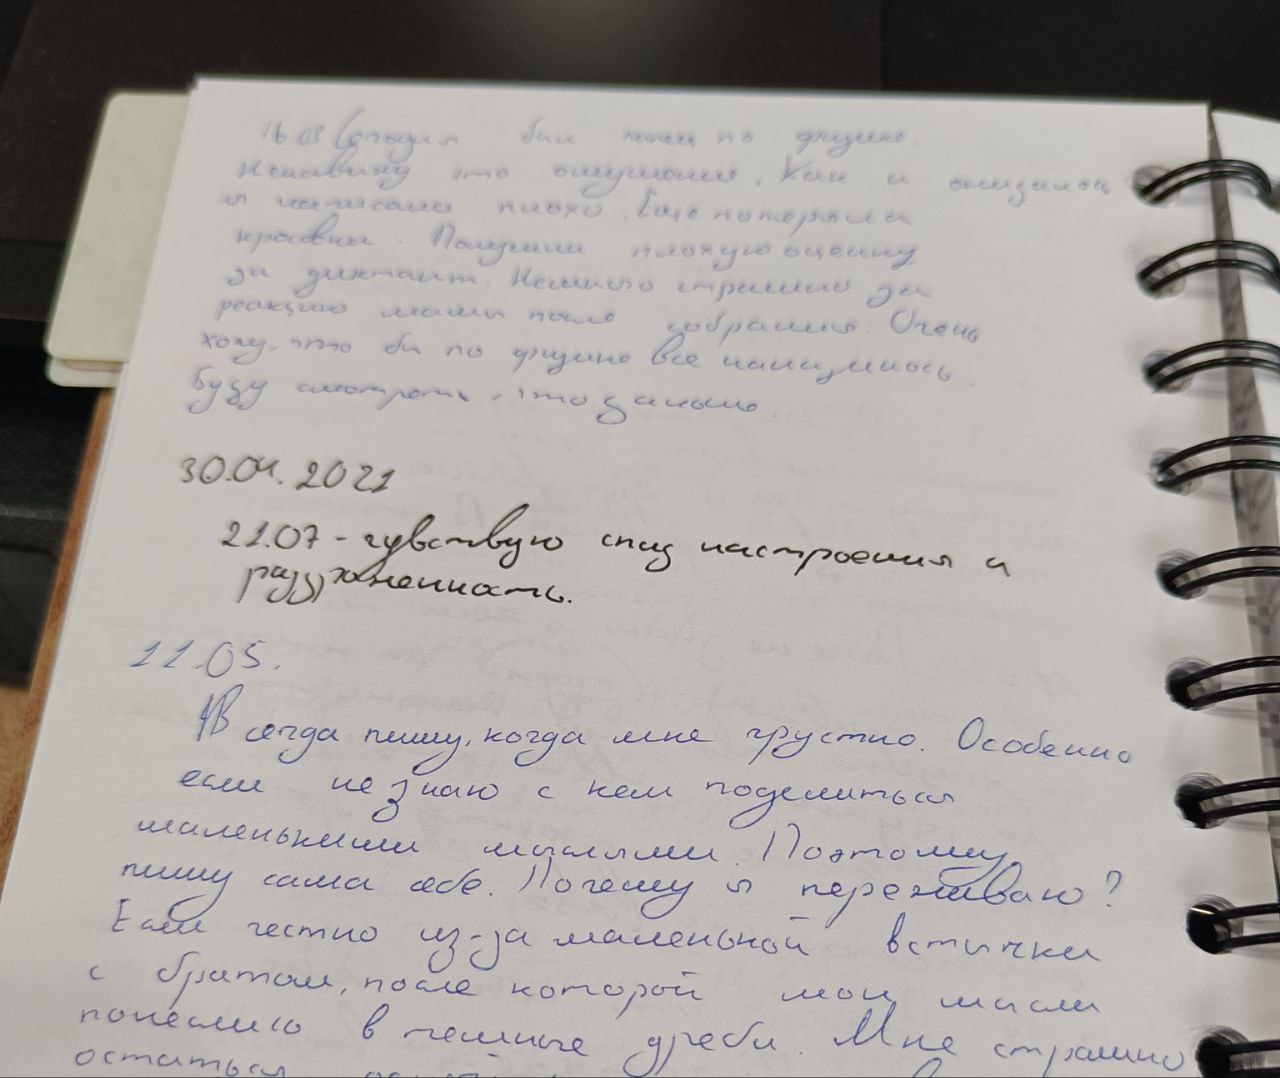 16.03 Сегодня был экзамен по физике.
Ненавижу это ощущение. Как и ожидалось
я написала плохо. Еще потеряли
кросовки. Получили плохую оценку
за диктант. Немного страшно за
реакцию мамы после собрания. Очень
хочу, что бы по физике все
Буду смотреть, что дальше.
30.04.2021
21.07 - чувствую спад настроения и
раздраженность.
11.05.
Всегда пишу, когда мне грустно. Особенно
если не знаю с кем поделиться
маленькими мыслями. Поэтому
пишу сама себе. Почему я переживаю?
Если честно из-за маленькой встички
с братом, после которой мои мысли
понеслись в темные дреби. Мне страшно
остаться